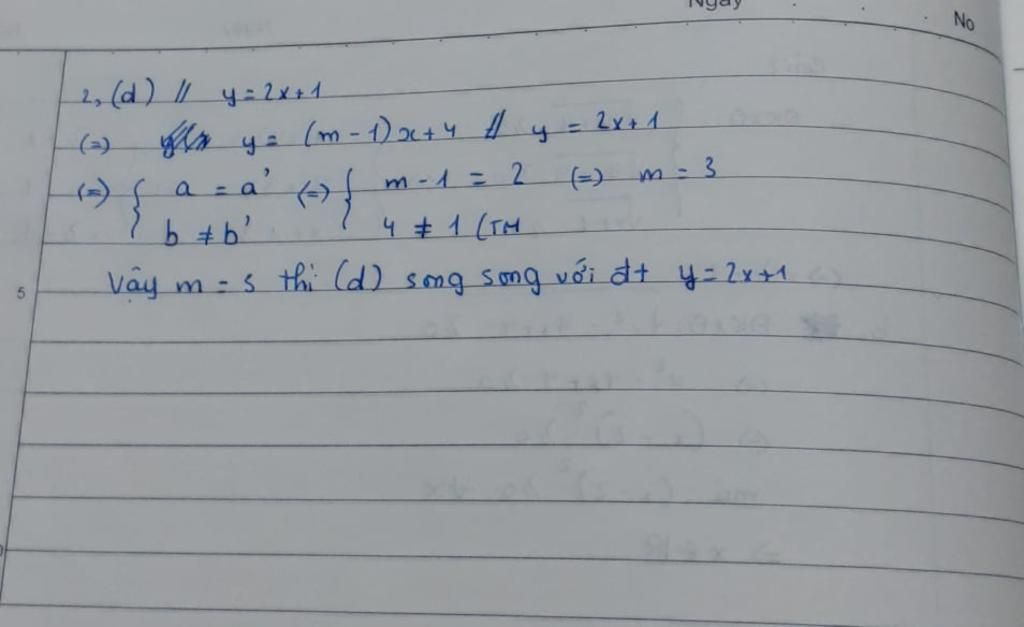 Ngày
No
2, (d) // y = 2x+1
(=) y = (m-1)x+4 // y = 2x+1
(=) { a = a' (=) { m - 1 = 2 (=) m = 3
b ≠ b' 4 ≠ 1 (TM
Vậy m = 3 thì (d) song song với đt y = 2x+1
5